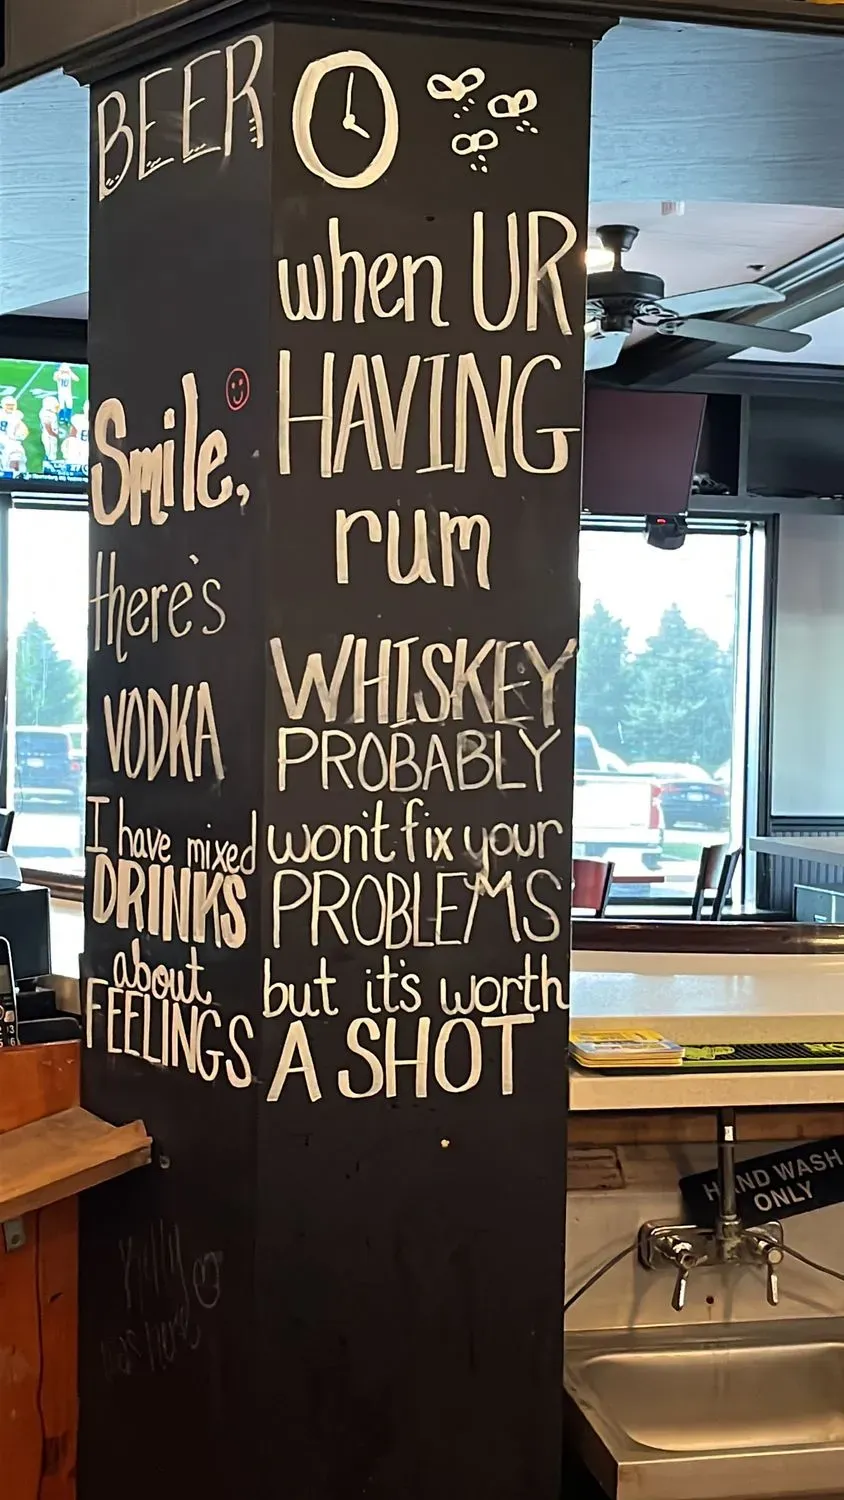 BEER
when UR
HAVING
rum
Smile,
there's
VODKA
WHISKEY
PROBABLY
I have mixed
DRINKS
about
FEELINGS
won't fix your
PROBLEMS
but it's worth
A SHOT
was here
HAND WASH
ONLY